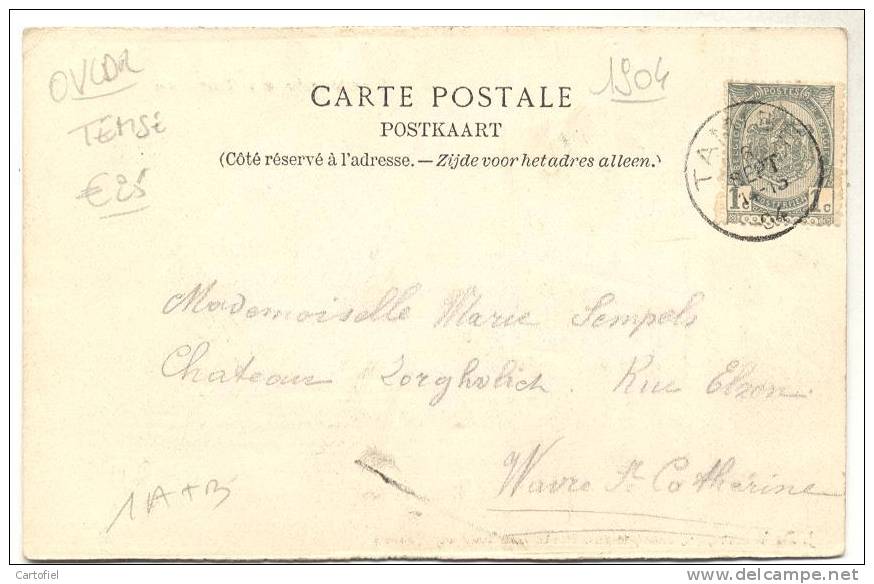 OVLDR
1904
TEMSE
€25
CARTE POSTALE
POSTKAART
(Côté réservé à l'adresse. — Zijde voor het adres alleen.)
POSTES
1c 1c
TAM
SEPT
04
Mademoiselle Marie Sempels
Chateau Zorgvlich. Rue Elzon
Wavre St Catherine
1A+B
Cartofiel
www.delcampe.net